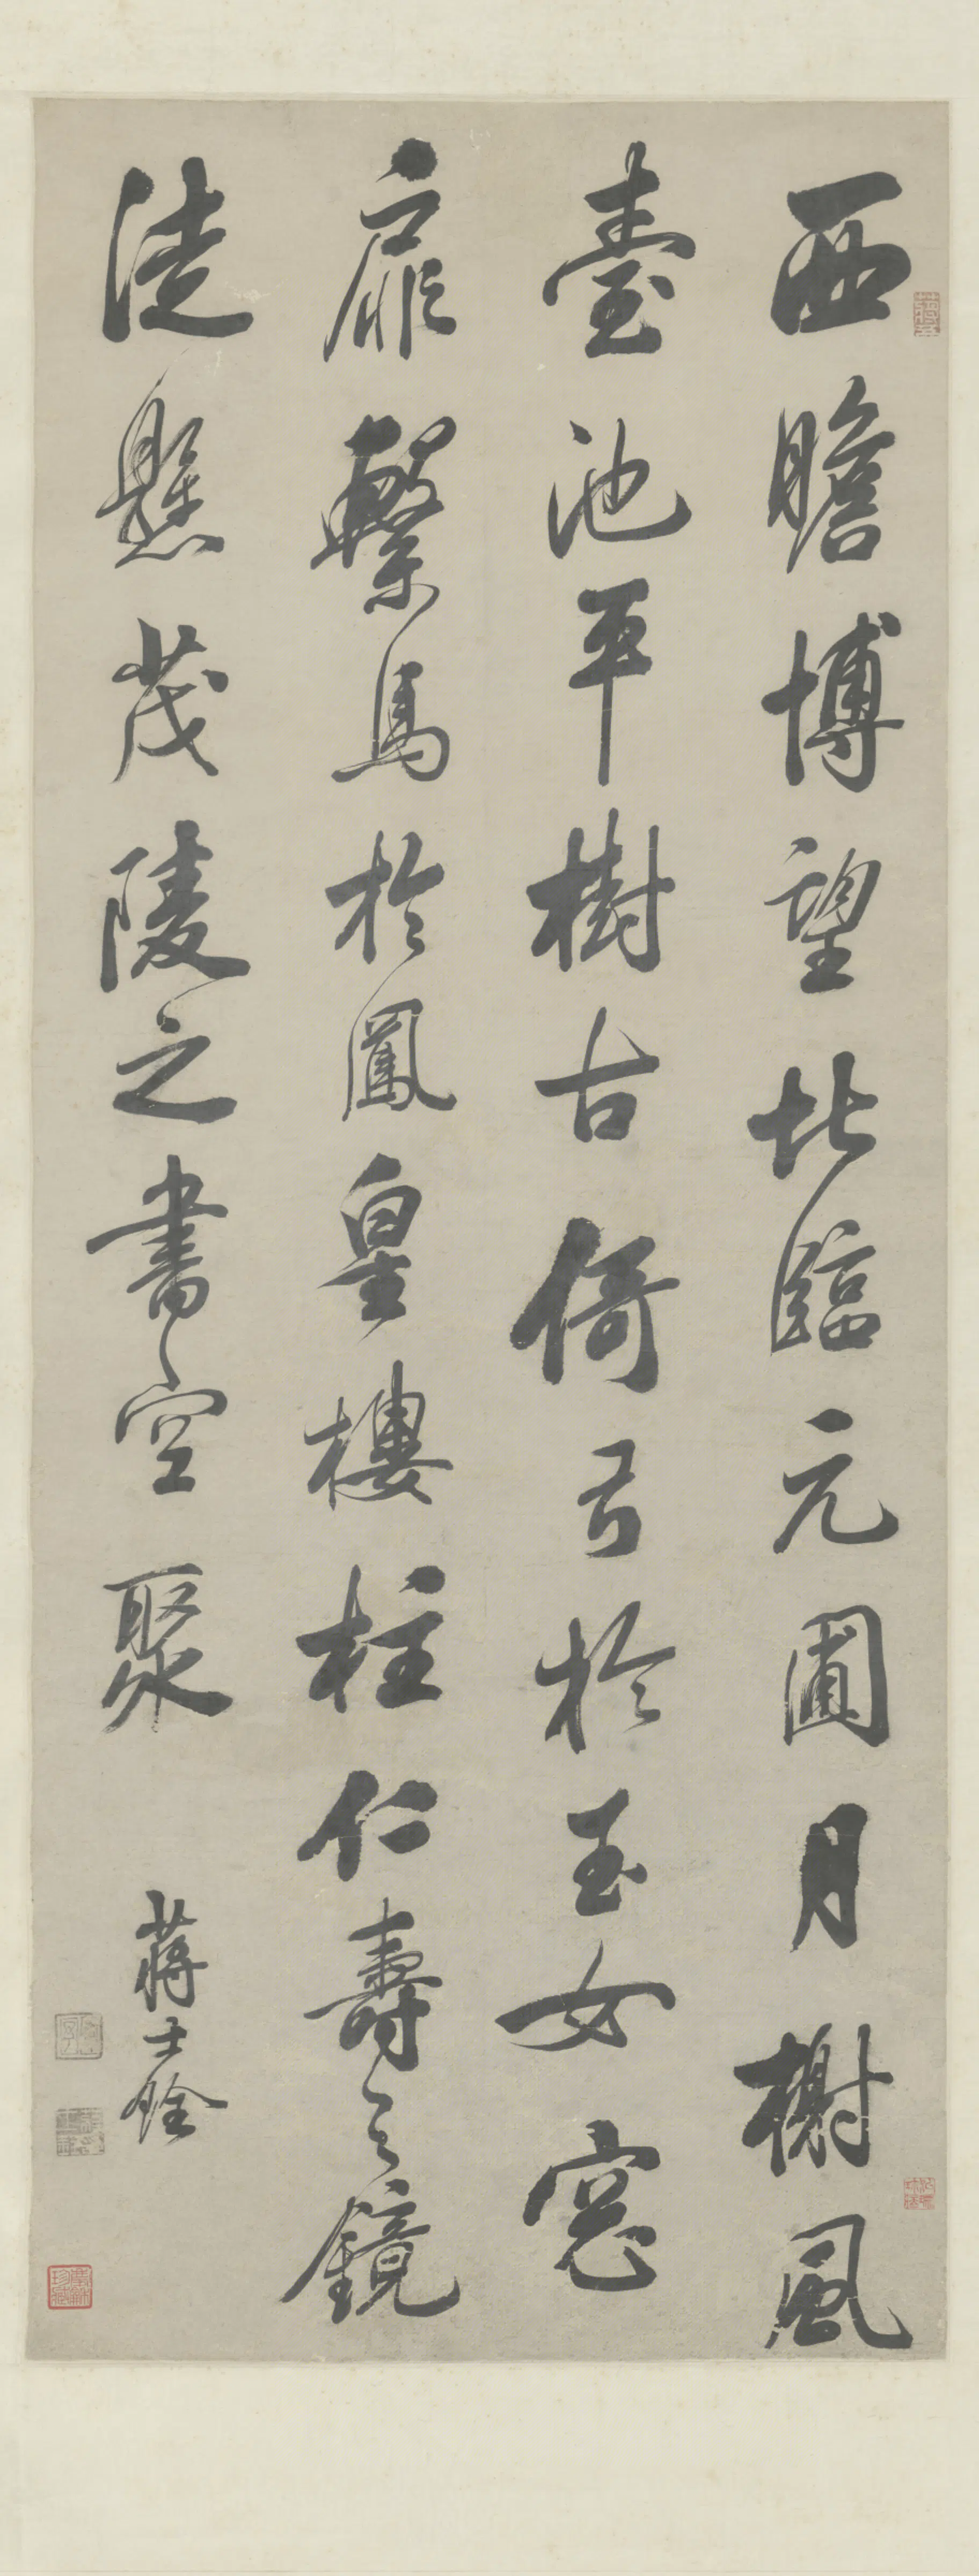 西瞻博望北臨元圃月榭風
臺池平樹古倚弓於玉女窓
扉繫馬於鳳皇樓柱仁壽之鏡
徒懸茂陵之書空聚
蔣士銓